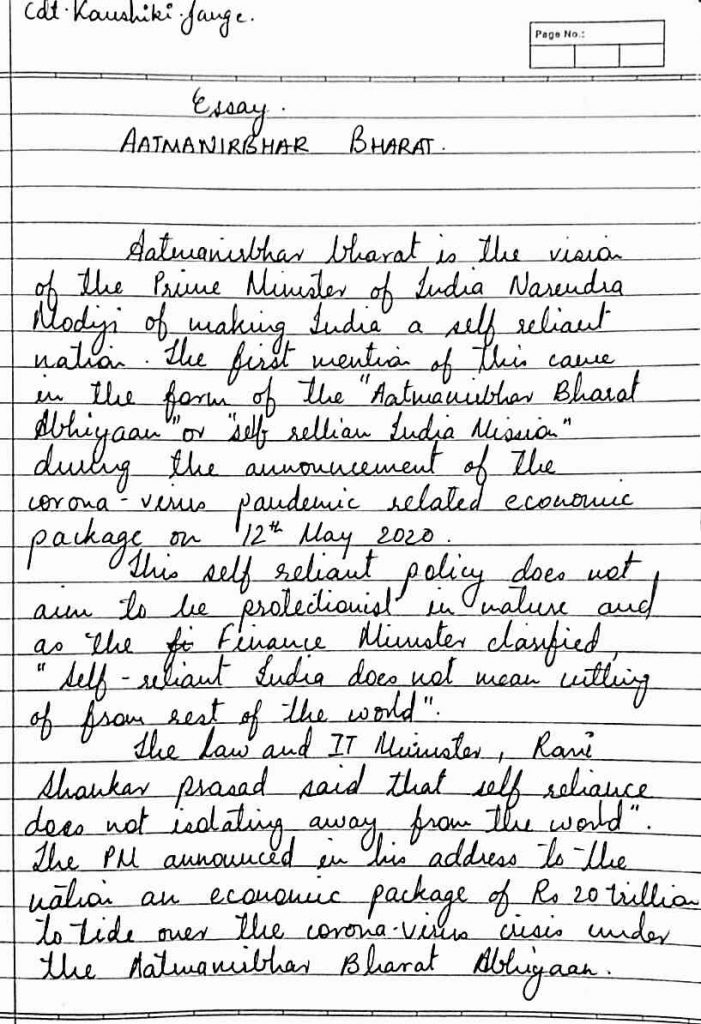 Cdt. Kaushiki Jange.
Page No.:
Essay.
AATMANIRBHAR BHARAT.
Aatmanirbhar bharat is the vision
of the Prime Minister of India Narendra
Modiji of making India a self reliant
nation. The first mention of this came
in the form of the "Aatmanirbhar Bharat
Abhiyaan" or "self rellian India Mission"
during the announcement of the
corona-virus pandemic related economic
package on 12th May 2020.
This self reliant policy does not
aim to be protectionist in nature and
as the fi Finance Minister clarified,
"Self-reliant India does not mean cutting
of from rest of the world".
The Law and IT Minister, Ravi
Shankar prasad said that self reliance
does not isolating away from the world".
The PM announced in his address to the
nation an economic package of Rs 20 trillion
to tide over the corona-virus crisis under
the Aatmanirbhar Bharat Abhiyaan.